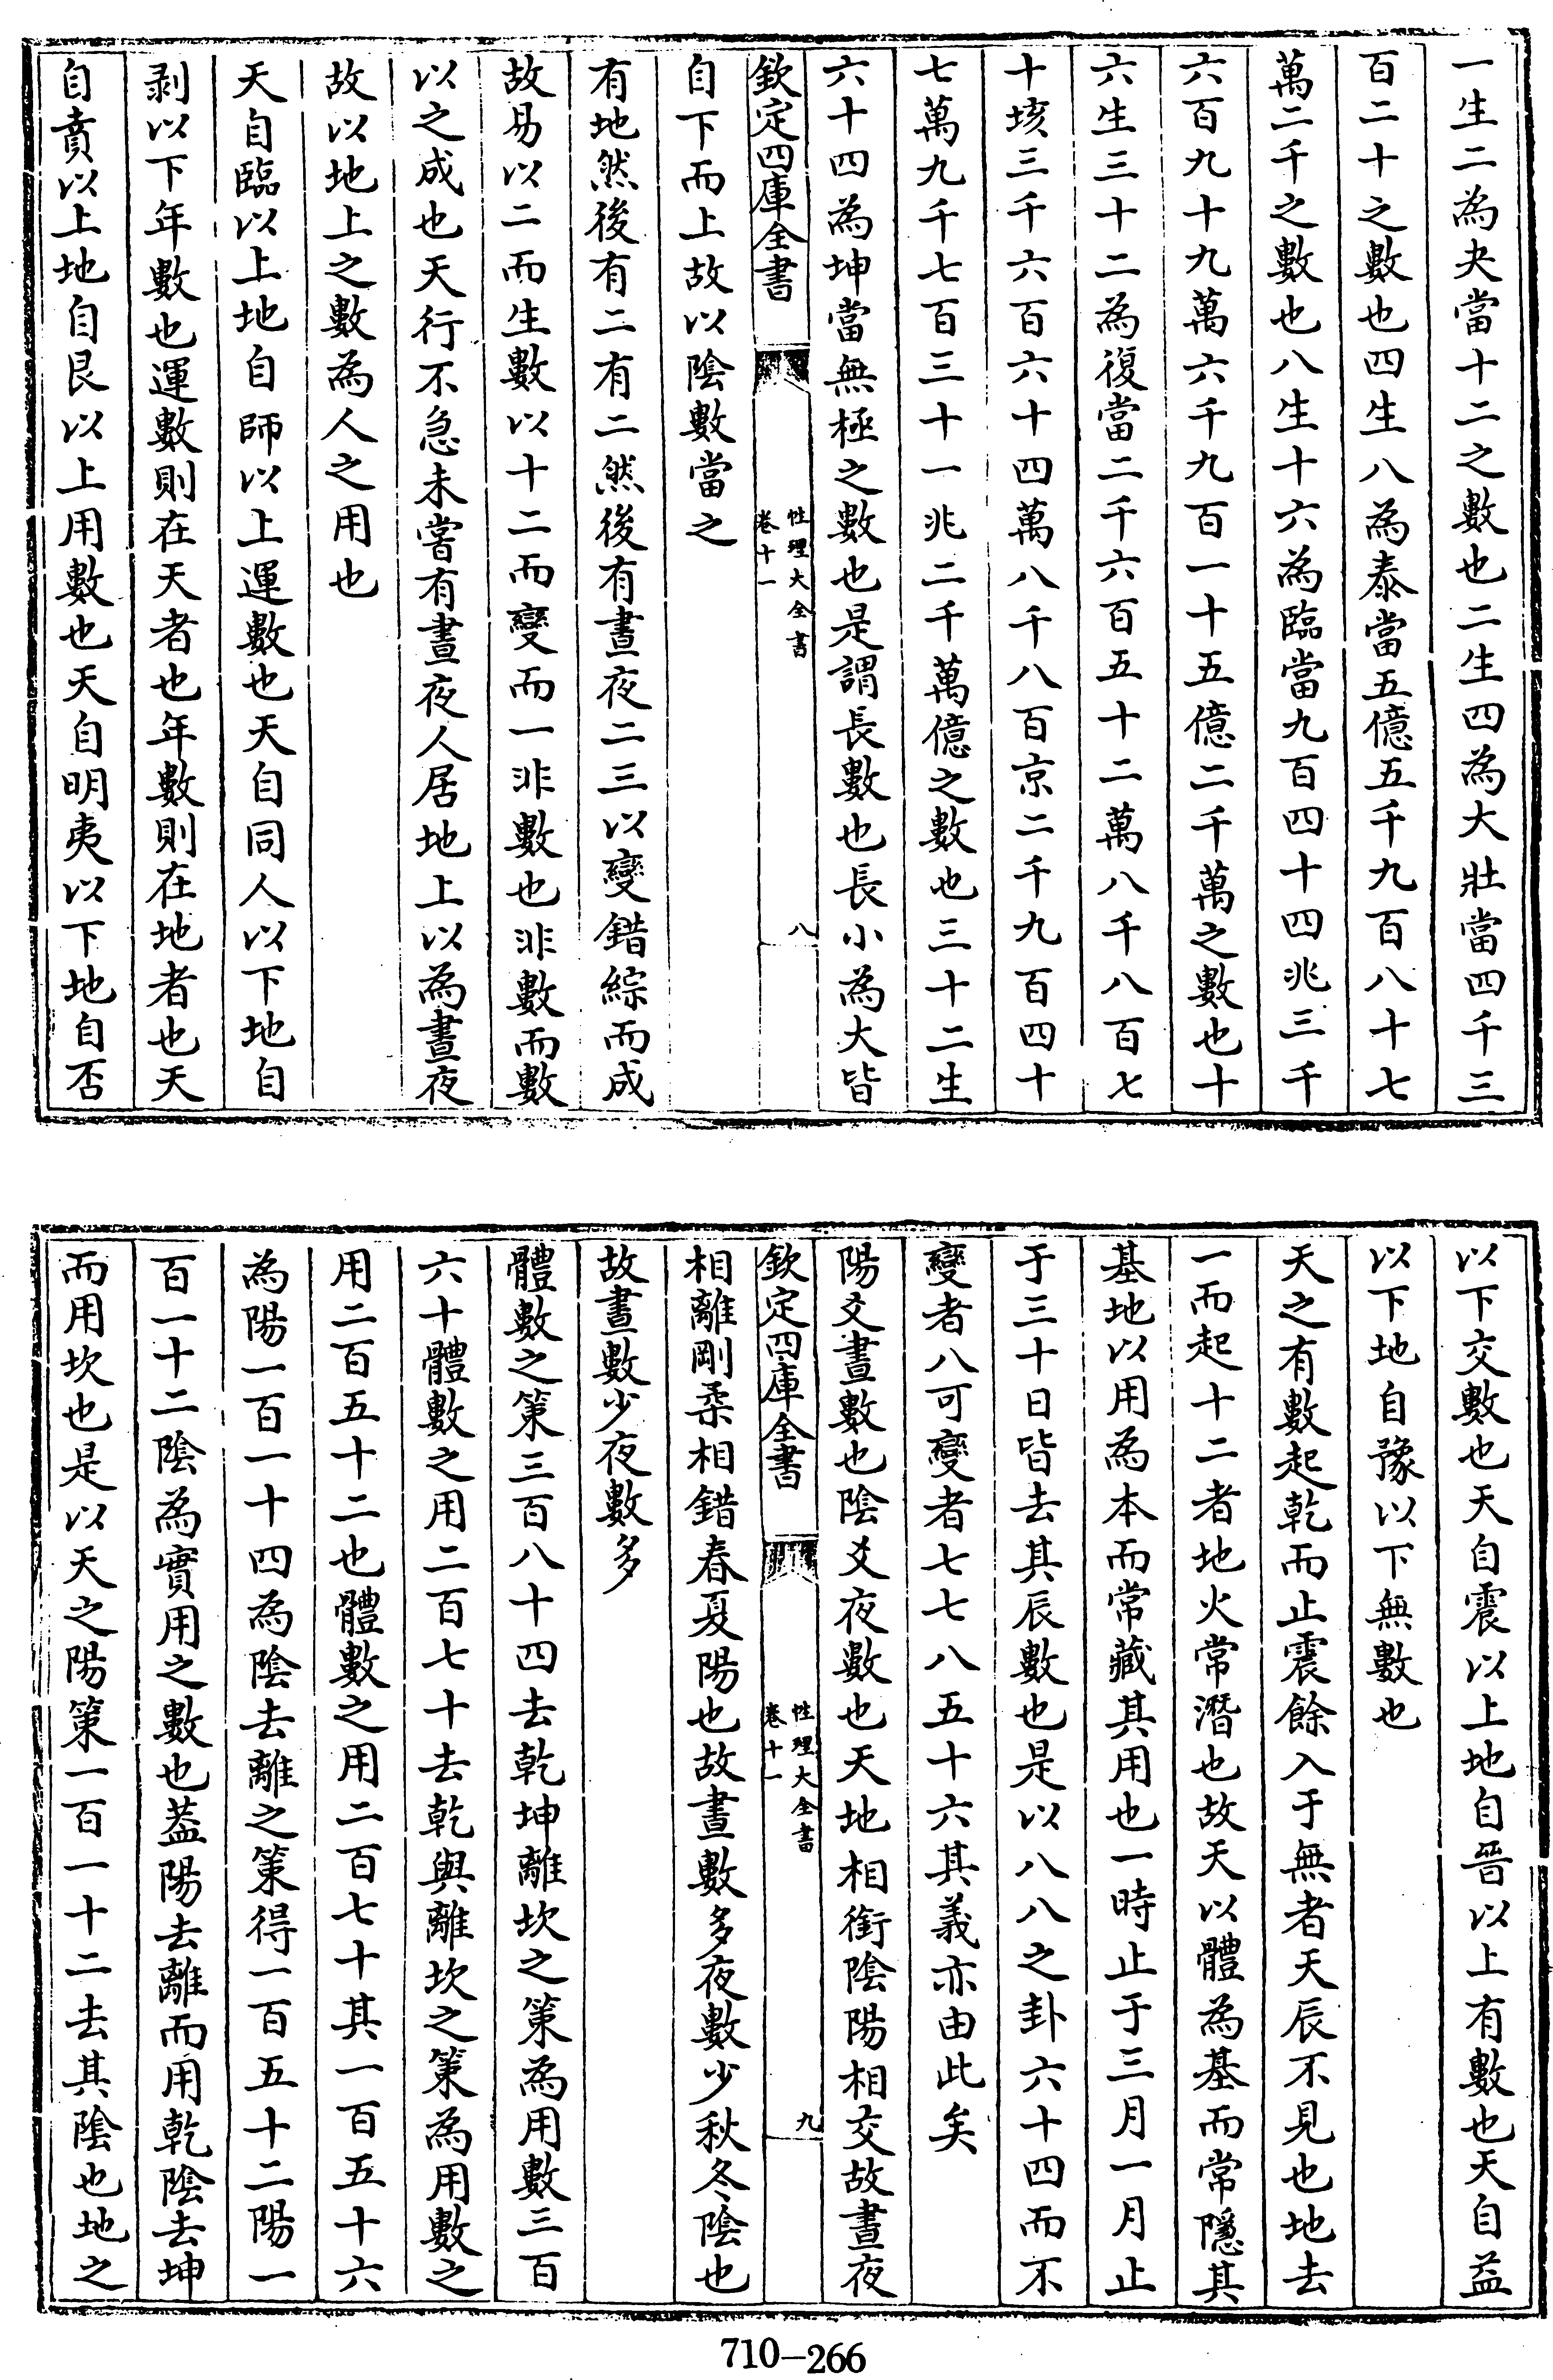 一生二為夬當十二之數也二生四為大壯當四千三
百二十之數也四生八為泰當五億五千九百八十七
萬二千之數也八生十六為臨當九百四十四兆三千
六百九十九萬六千九百一十五億二千萬之數也十
六生三十二為復當二千六百五十二萬八千八百七
十垓三千六百六十四萬八千八百京二千九百四十
七萬九千七百三十一兆二千萬億之數也三十二生
六十四為坤當無極之數也是謂長數也長小為大皆
欽定四庫全書
性理大全書
卷十一
八
自下而上故以陰數當之
有地然後有二有二然後有晝夜二三以變錯綜而成
故易以二而生數以十二而變而一非數也非數而數
以之成也天行不急未嘗有晝夜人居地上以為晝夜
故以地上之數為人之用也
天自臨以上地自師以上運數也天自同人以下地自
剥以下年數也運數則在天者也年數則在地者也天
自賁以上地自艮以上用數也天自明夷以下地自否
以下交數也天自震以上地自晉以上有數也天自益
以下地自豫以下無數也
天之有數起乾而止震餘入于無者天辰不見也地去
一而起十二者地火常潛也故天以體為基而常隱其
基地以用為本而常藏其用也一時止于三月一月止
于三十日皆去其辰數也是以八八之卦六十四而不
變者八可變者七七八五十六其義亦由此矣
陽爻晝數也陰爻夜數也天地相銜陰陽相交故晝夜
欽定四庫全書
性理大全書
卷十一
九
相離剛柔相錯春夏陽也故晝數多夜數少秋冬陰也
故晝數少夜數多
體數之策三百八十四去乾坤離坎之策為用數三百
六十體數之用二百七十去乾與離坎之策為用數之
用二百五十二也體數之用二百七十其一百五十六
為陽一百一十四為陰去離之策得一百五十二陽一
百一十二陰為實用之數也蓋陽去離而用乾陰去坤
而用坎也是以天之陽策一百一十二去其陰也地之
710-266